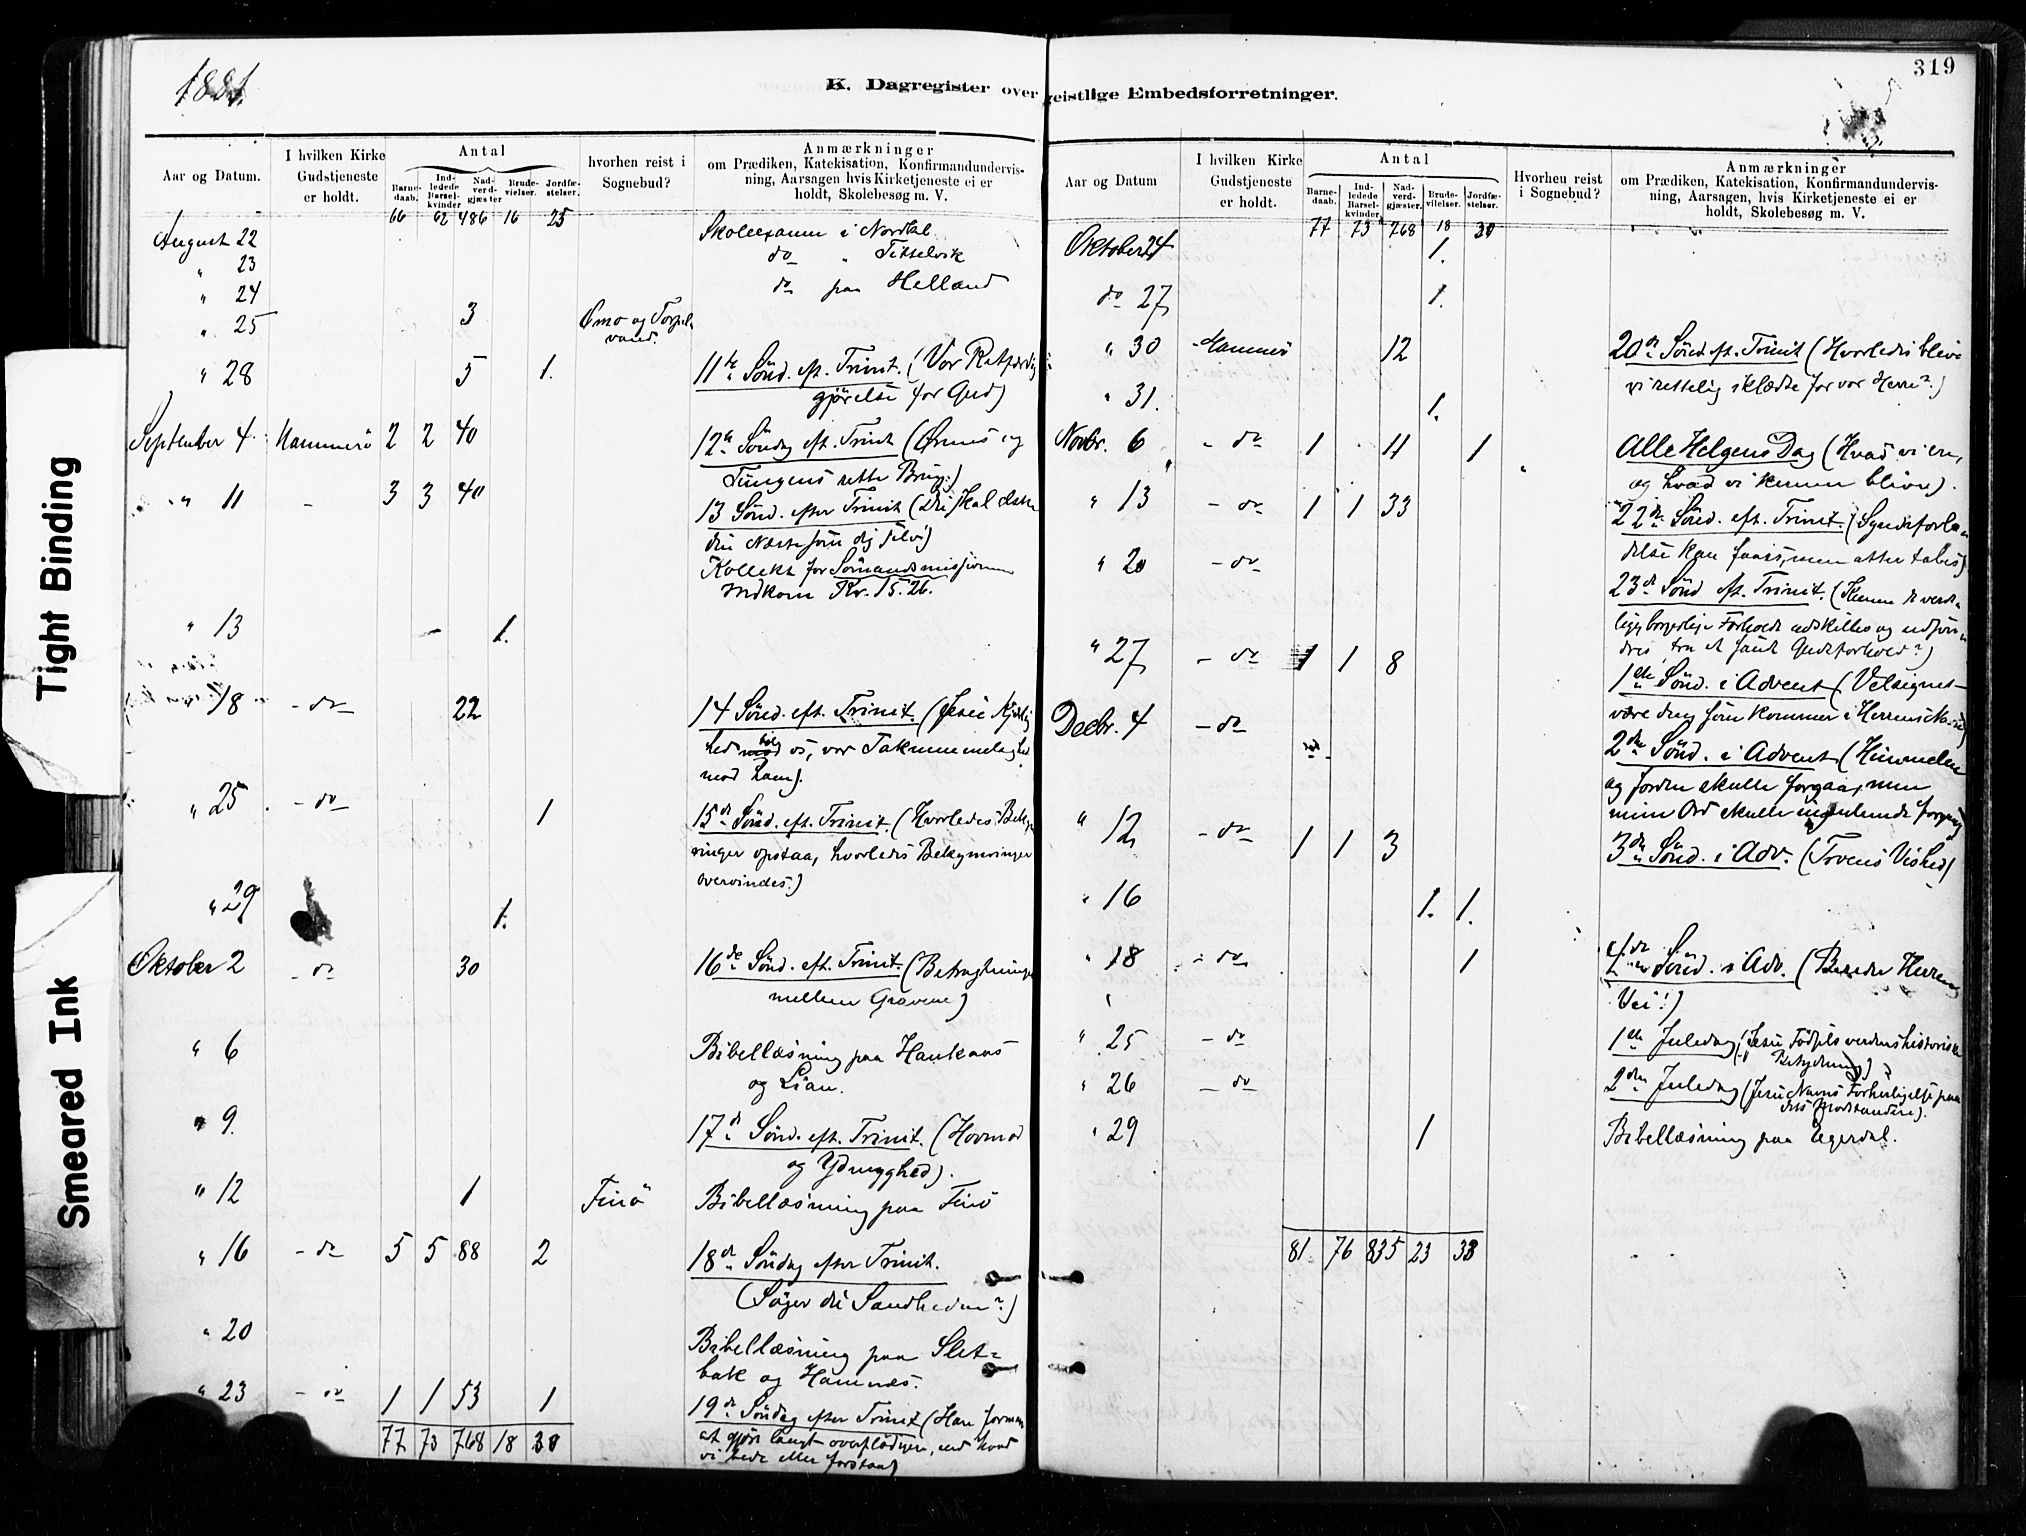 Tight Binding
Smeared Ink
319
1881.
K. Dagregister over geistlige Embedsforretninger.
Aar og Datum.
I hvilken Kirke Gudstjeneste er holdt.
Antal
Barnedaab.
Indledede Barselkvinder
Nadverdgjæster
Brudevielser.
Jordfæstelser.
hvorhen reist i Sognebud?
Anmærkninger
om Prædiken, Katekisation, Konfirmandundervisning, Aarsagen hvis Kirketjeneste ei er holdt, Skolebesøg m. V.
66 62 486 16 25
August 22 Skoleexamen i Nordbl
" 23 do " Tittelvik
" 24 do paa Helland
" 25 3 Ømo og
vand.
" 28 5 1. 11te Sönd. eft. Trinit. (Vor Retfærdig
gjörelse for Gud)
September 4. Hammerö 2 2 40 12te Söndag eft. Trinit (Ørnes og
Tungens rette Brug.)
" 11 - 3 3 40 13 Sönd. efter Trinit (Du skal elske
din Næste som dig selv)
Kollekt for Sömandsmissionen
indkom Kr. 15.26.
" 13 1.
" 18 - do 22 14 Sönd. eft. Trinit. (Jesu Kjærlig
hed mod os, vor Taknemmelighed
mod ham).
" 25. - do 1 15de Sönd. eft. Trinit. (Hvorledes Bekym
ringer opstaa, hvorledes Bekymringer
overvindes.)
" 29 1.
Oktober 2 - do 30 16de Sönd. eft. Trinit. (Betragtninger
mellem Gravene)
" 6 Bibellæsning paa Haukaas
og Lian.
" 9. 17de Sönd. eft. Trinit. (Hovmod
og Ydmyghed).
" 12 1 Finö Bibellæsning paa Finö
" 16 - do 5 5 88 2 18de Söndag efter Trinit.
(Söger du Sandheden?)
" 20 Bibellæsning paa Slet-
bak og Hamnes.
" 23 - do 1 1 53 1 19de Söndag efter Trinit (Han formaar
at gjöre langt overflödigere, end hvad
vi bede eller forstaa)
77 73 768 18 30
Aar og Datum
I hvilken Kirke Gudstjeneste er holdt.
Antal
Barnedaab.
Indledede Barselkvinder
Nadverdgjæster.
Brudevielser.
Jordfæstelser.
Hvorheu reist i Sognebud?
Anmærkninger
om Prædiken, Katekisation, Konfirmandundervisning, Aarsagen, hvis Kirketjeneste ei er holdt, Skolebesøg m. V.
77 73 768 18 30
Oktober 24 1.
do 27 1.
" 30 Hammerö 12 20de Sönd. eft. Trinit (Hvorledes blive
vi rettelig iklædte for vor Herre?)
" 31. 1.
Novbr. 6 - do 1 11 1 Alle Helgens Dag (Hvad vi ere,
og hvad vi kunne blive).
" 13 - do 1 1 33 22de Sönd. eft. Trinit. (Syndsforla-
delse kan faaes, men atter tabes)
" 20 - do 23de Sönd eft. Trinit. (Kunne de verds-
lige borgerlige Forholde udskilles og udsön-
dres fra et sandt Gudsforhold?)
" 27 - do 1 1 8 1ste Sönd. i Advent (Velsignet
være den som kommer i Herrens Navn)
Decbr. 4 - do 2den Sönd. i Advent (Himmelen
og Jorden skulle forgaa, men
mine Ord skulle ingenlunde forgaa)
" 12 - do 1 1 3 3die Sönd. i Adv. (Troens Vished)
" 16 1. 1.
" 18 - do 1 4de Sönd. i Adv. (Bereder Herrens
Vei!)
" 25 - do 1ste Juledag (Jesu Födsels verdenshistoriske
Betydning)
" 26 - do 2den Juledag (Jesu Navns Forherligelse paa
dets Modstandere).
" 29 1 Bibellæsning paa Egerdal.
81 76 835 23 33